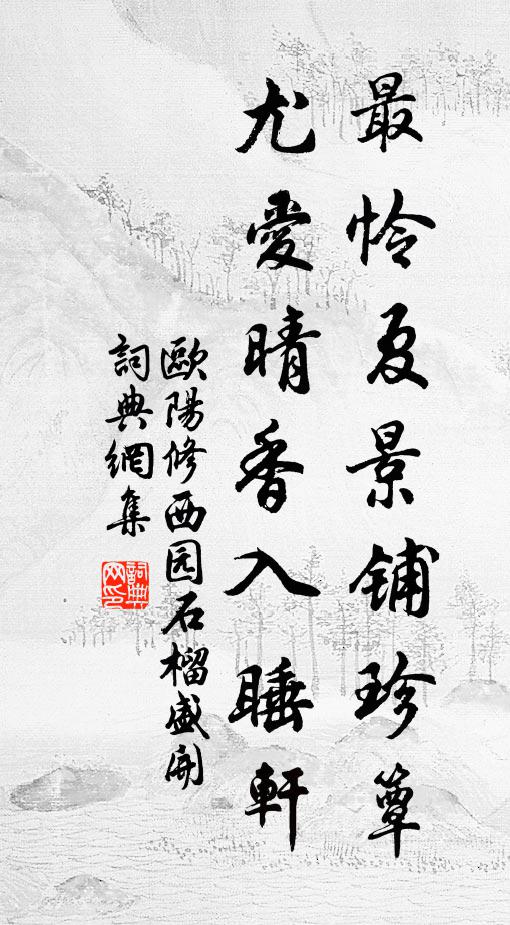 最怜夏景铺珍簟
尤爱晴香入睡轩
歐陽修西园石榴盛開
詞典網集
詞典网印